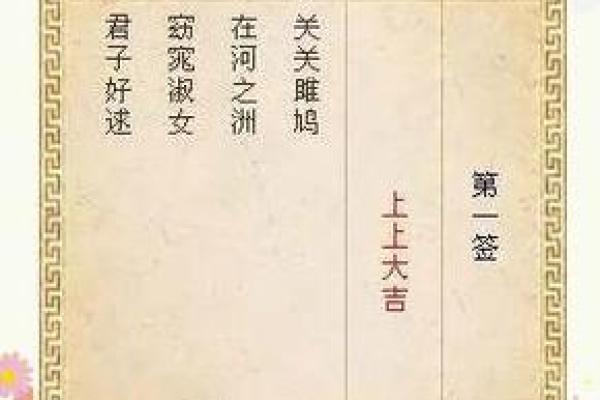 第一签
上上大吉
关关雎鸠
在河之洲
窈窕淑女
君子好逑